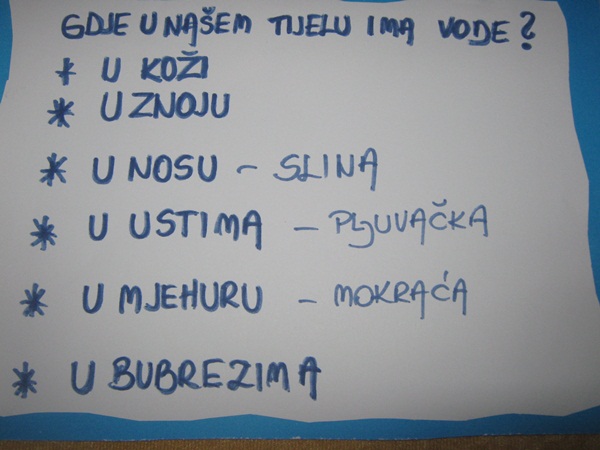 GDJE U NAŠEM TIJELU IMA VODE?
* U KOŽI
* U ZNOJU
* U NOSU - SLINA
* U USTIMA - PLJUVAČKA
* U MJEHURU - MOKRAĆA
* U BUBREZIMA